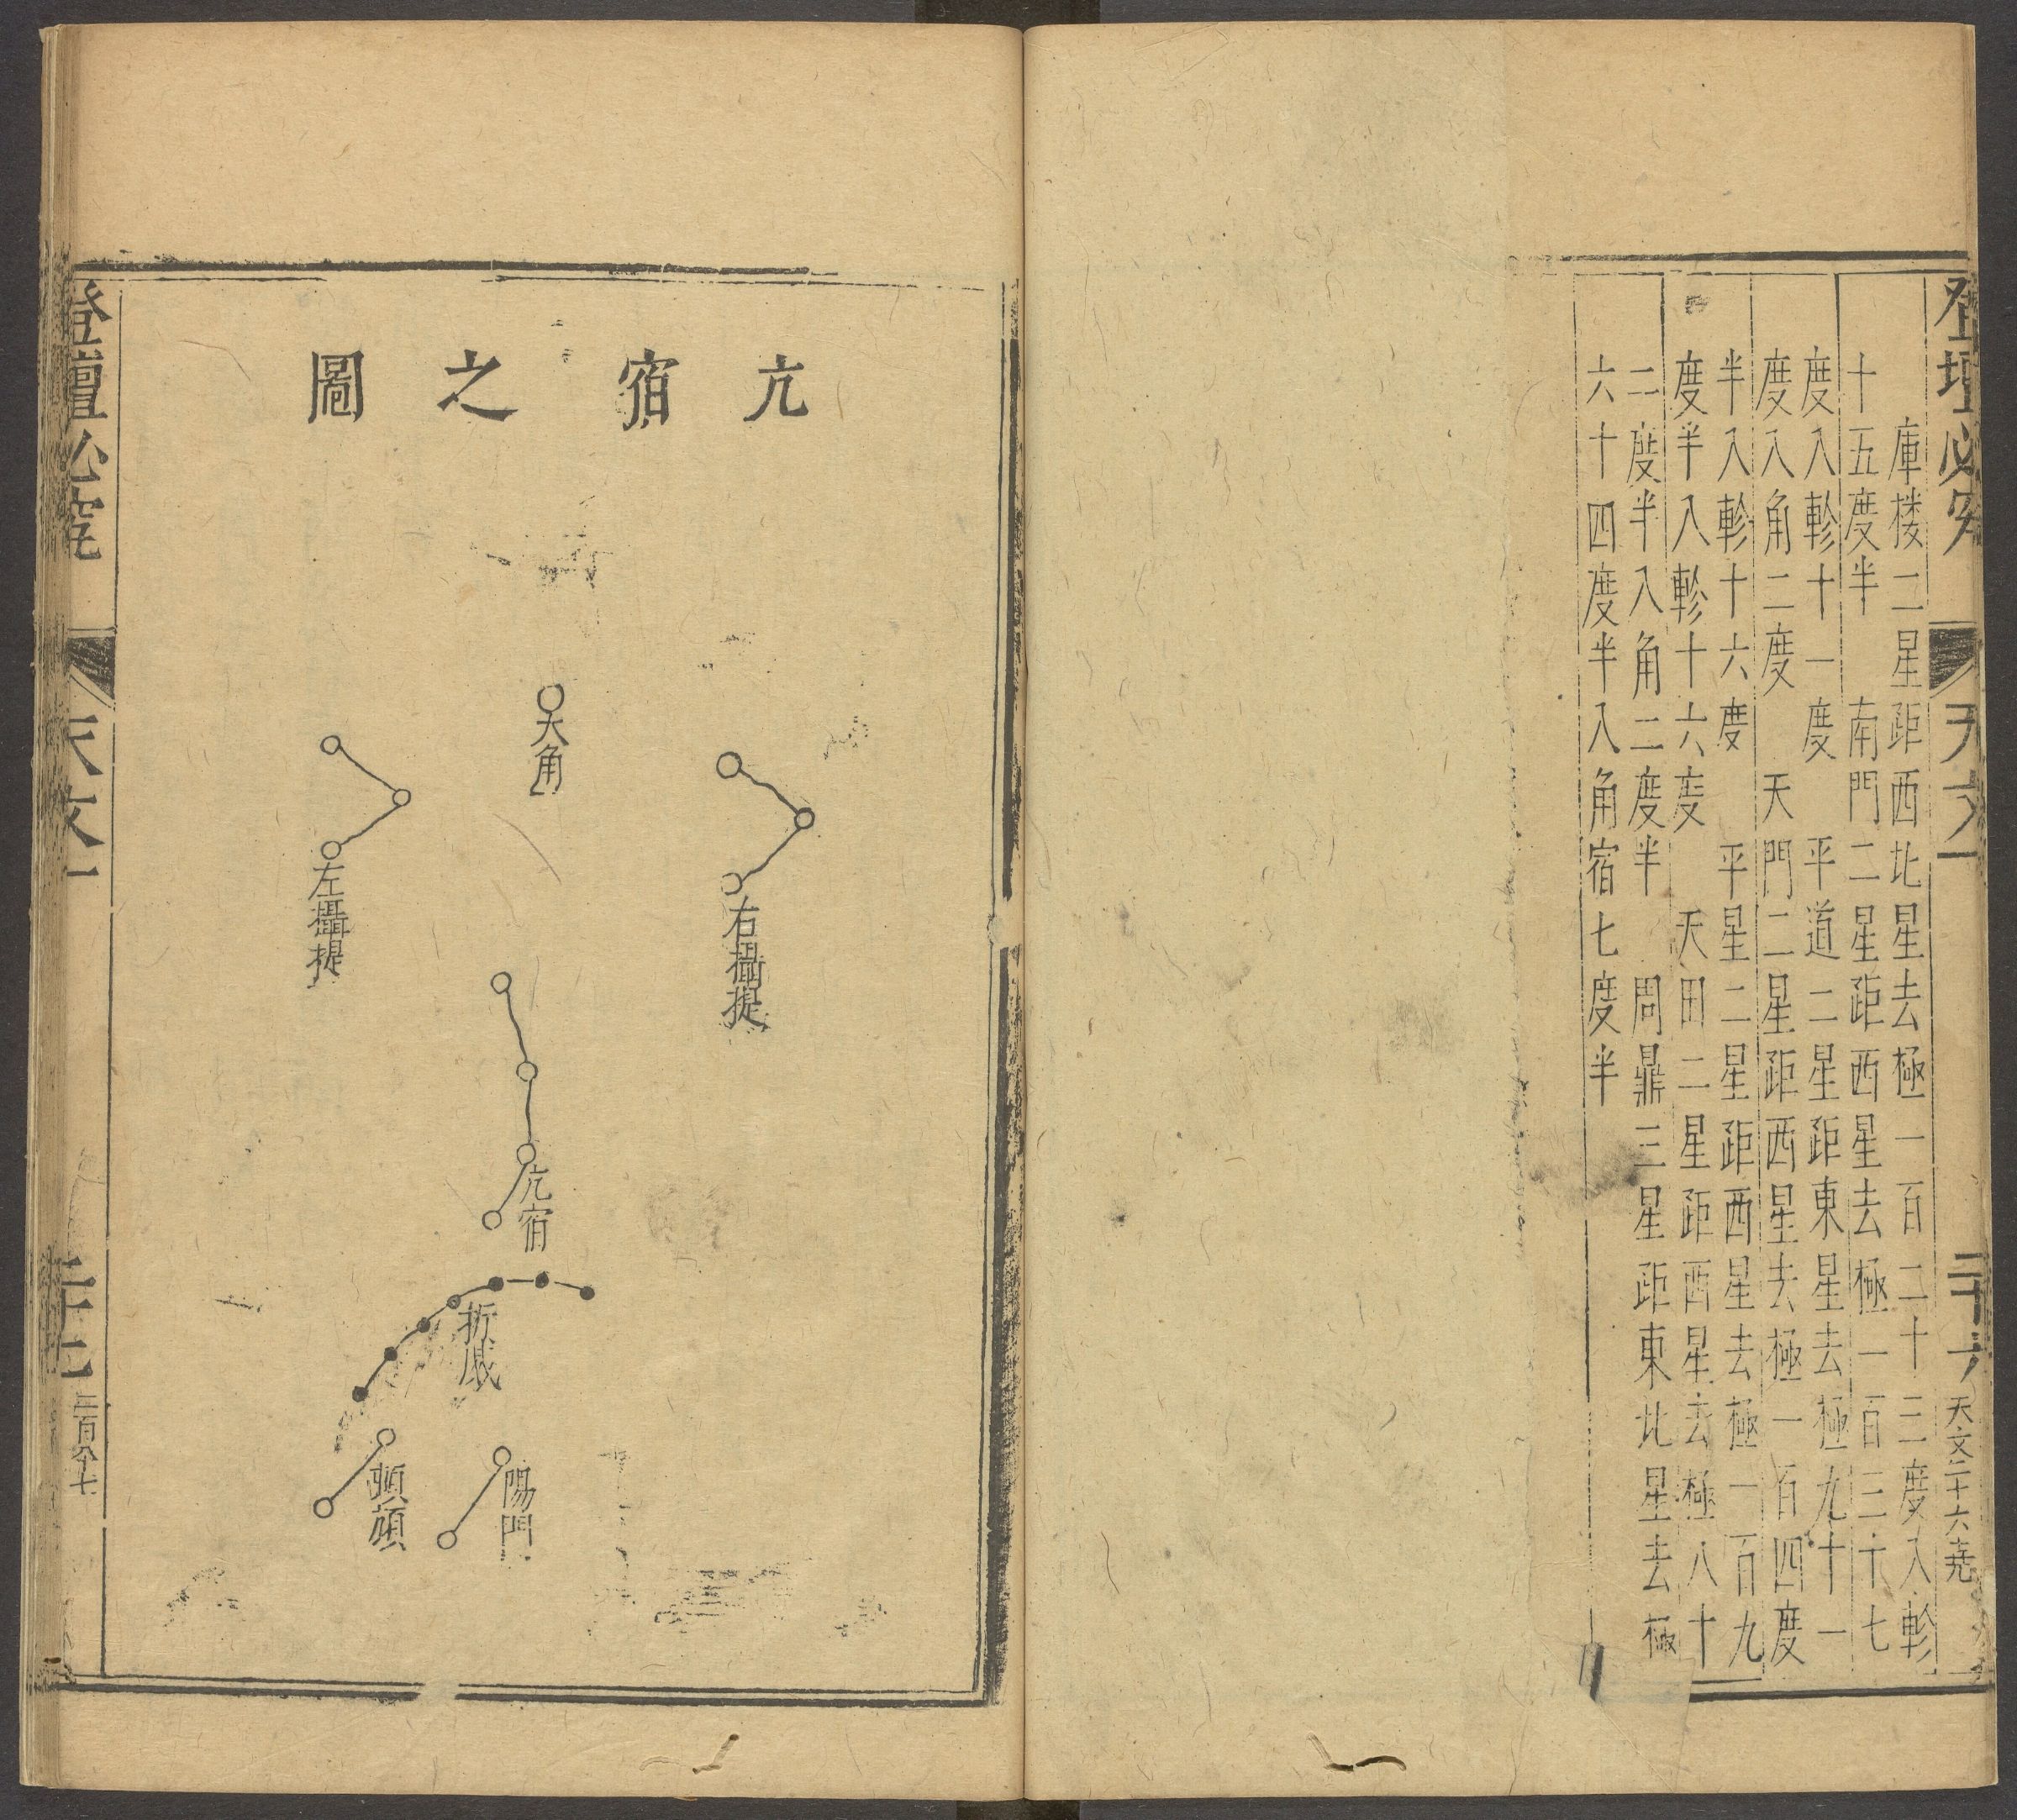 登壇必究
天文一
二十六
天文二十六尭
庫楼二星距西北星去極一百二十三度入軫
十五度半 南門二星距西星去極一百三十七
度入軫十一度 平道二星距東星去極九十一
度入角二度 天門二星距西星去極一百四度
半入軫十六度 平星二星距西星去極一百九
度半入軫十六度 天田二星距西星去極八十
二度半入角二度半 周鼎三星距東北星去極
六十四度半入角宿七度半
亢宿之圖
大角
右攝提
左攝提
亢宿
折威
陽門
頓頑
登壇必究
天文一
二十七